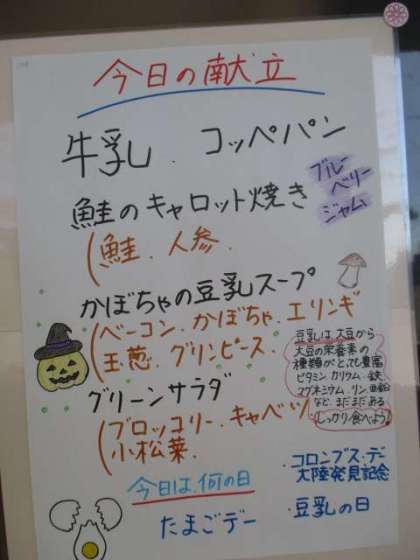 今日の献立
牛乳．コッペパン
ブルー
ベリー
ジャム
鮭のキャロット焼き
(鮭．人参．
かぼちゃの豆乳スープ
(ベーコン．かぼちゃ．エリンギ
玉葱．グリンピース．
豆乳は大豆から
大豆の栄養素の
種類がとても豊富
ビタミン カリウム．鉄
マグネシウム リン 亜鉛
など まだまだある
しっかり食べよう!
グリーンサラダ
(ブロッコリー．キャベツ
小松菜．
今日は何の日
・コロンブス・デー
大陸発見記念
たまごデー
・豆乳の日